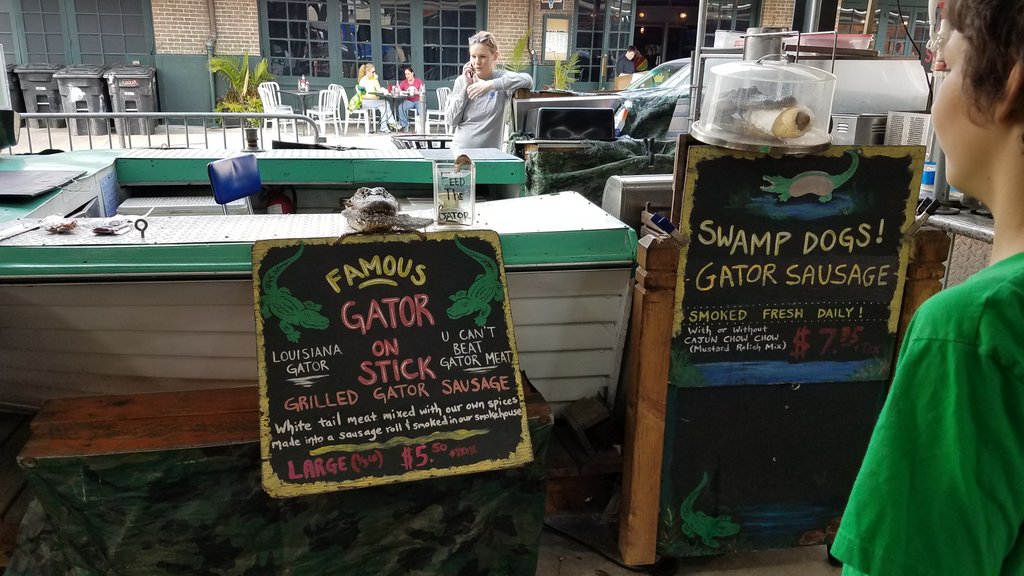 FEED
THE
GATOR
FAMOUS
GATOR
ON
STICK
LOUISIANA
GATOR
U CAN'T
BEAT
GATOR MEAT
GRILLED GATOR SAUSAGE
White tail meat mixed with our own spices
Made into a sausage roll & smoked in our smokehouse
LARGE $5.50
SWAMP DOGS!
GATOR SAUSAGE
SMOKED FRESH DAILY!
With or Without
CAJUN CHOW CHOW
(Mustard Relish Mix)